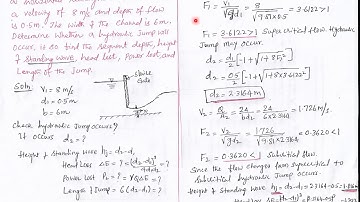 a velocity of 8 m/s and depth of flow
is 0.5m. The width of the channel is 6m.
Determine whether a hydraulic Jump will
occur, is so find the sequent depth, height
of standing wave, head lost, Power lost and
Length of the Jump.
Soln:
V₁ = 8 m/s
d₁ = 0.5m
b = 6m
Sluice
Gate
Check hydraulic Jump occurs?
If occurs d₂ = ?
Height of Standing wave hj = d₂-d₁
Head loss ΔE = ? = (d₂-d₁)³/4d₁d₂ = ?
Power lost PL = ? = γQΔE = ?
Length of Jump = 6(d₂-d₁) = ?
F₁ = V₁/√gd₁ = 8/√9.81×0.5 = 3.6122 > 1
F₁ = 3.6122 > 1 Supercritical flow Hydraulic
Jump may occur.
d₂ = d₁/2 [-1+√1+8F₁²]
d₂ = 0.5/2 [-1+√1+8×3.6122²]
d₂ = 2.3164 m
V₂ = Q/A₂ = 24/A₂ = 24/6×2.3164 = 1.726 m/s.
F₂ = V₂/√gd₂ = 1.726/√9.81×2.3164 = 0.3620 < 1
F₂ = 0.3620 < 1 Subcritical flow.
Since the flow changes from supercritical to
Subcritical hydraulic Jump occurs.
Height of Standing wave hj = d₂-d₁ = 2.3164-0.5 =